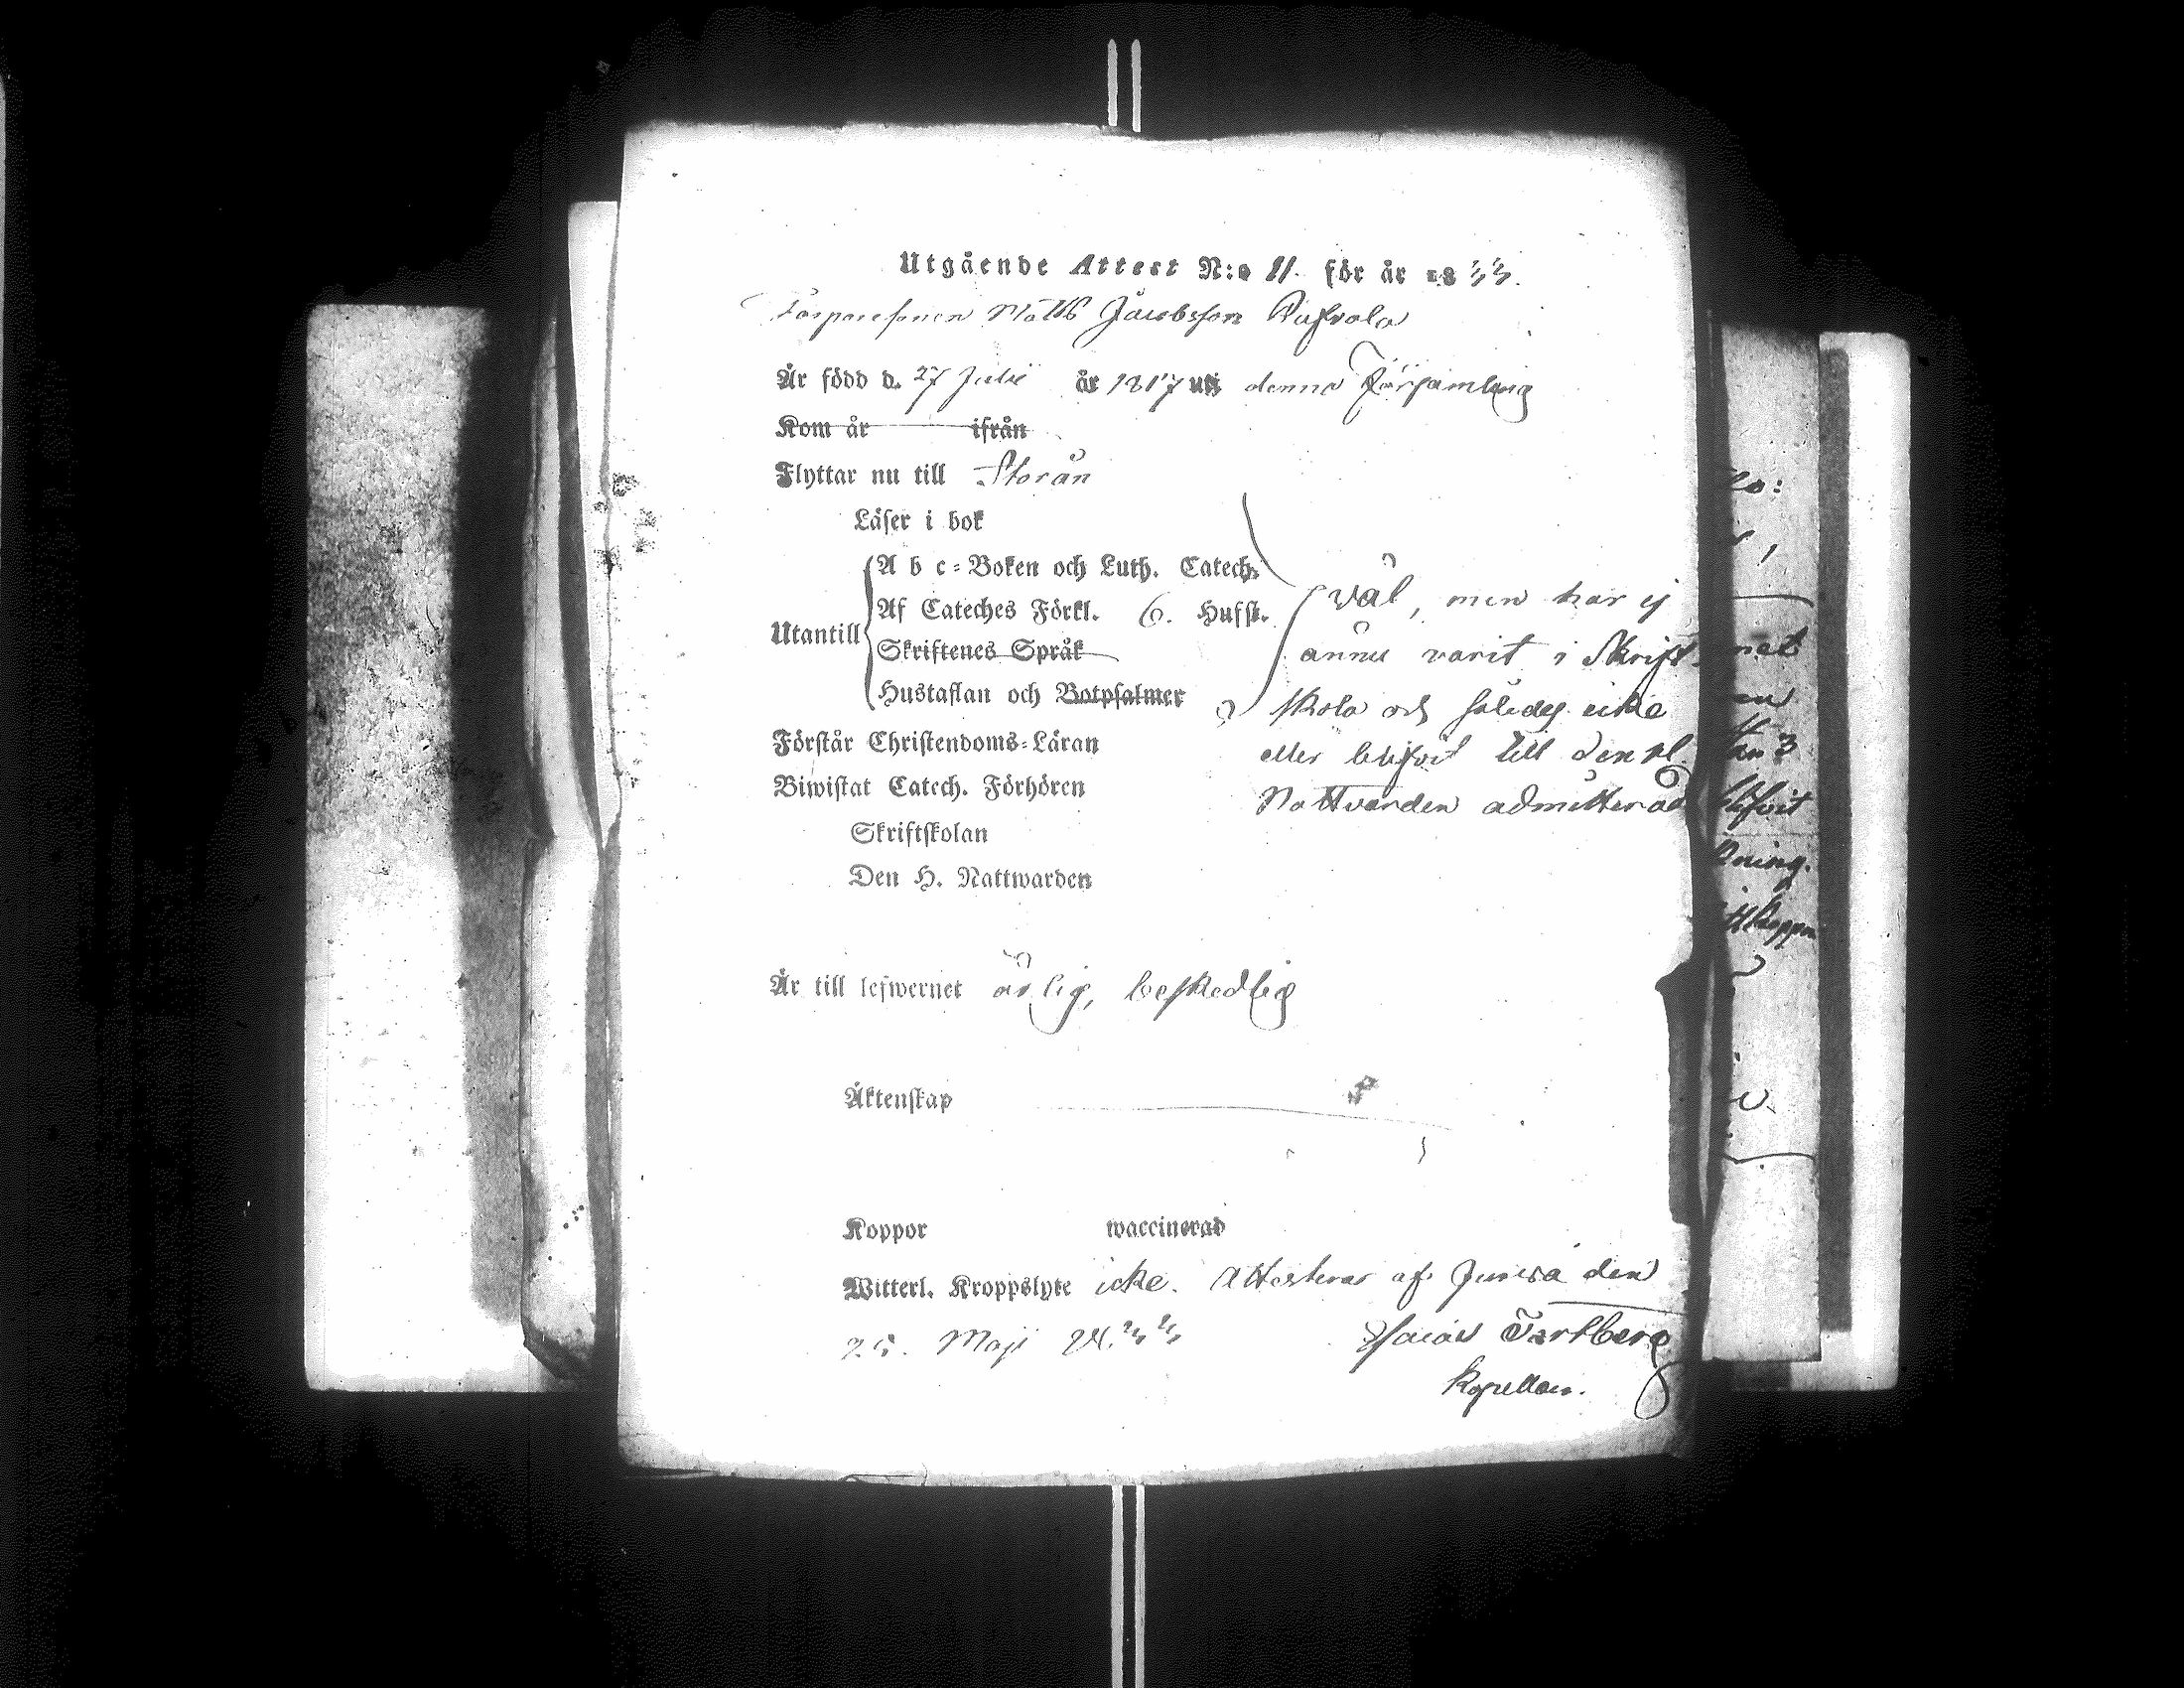 Utgående Attest N:o 11. för år 1833.
Torparesonen Matts Jacobsson
Är född d. 27 Julii år 1817 uti denna Församling
Kom år ifrån
Flyttar nu till Storån
Läser i bok
A b c-Boken och Luth. Catech.
Af Cateches Förkl. 6. Hufst.
Utantill
Skriftenes Språk
Hustaflan och Botpsalmer
väl, men har ej
ännu varit i Skrift
skola och således icke
eller blifvit till den H.
Nattvarden admitterad
Förstår Christendoms-Läran
Biwistat Catech. Förhören
Skriftskolan
Den H. Nattwarden
Är till lefwernet ärlig, beskedlig
Äktenskap
Koppor waccinerad
Witterl. Kroppslyte icke. Attesteras af Jurva den
25. Maji 1833
Esaias
Kapellan.